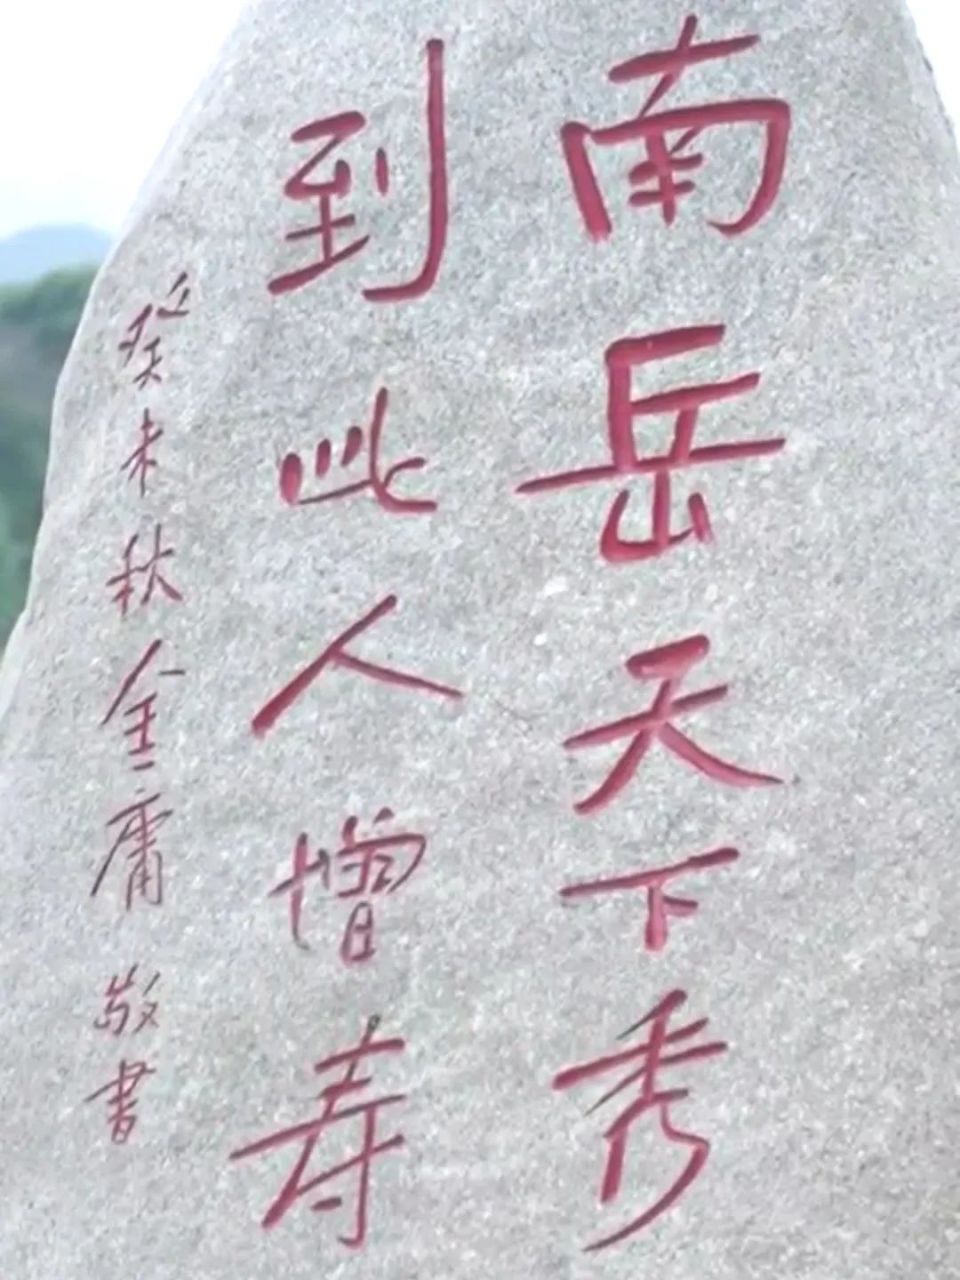 南岳天下秀
到此人增寿
癸未秋金庸敬书